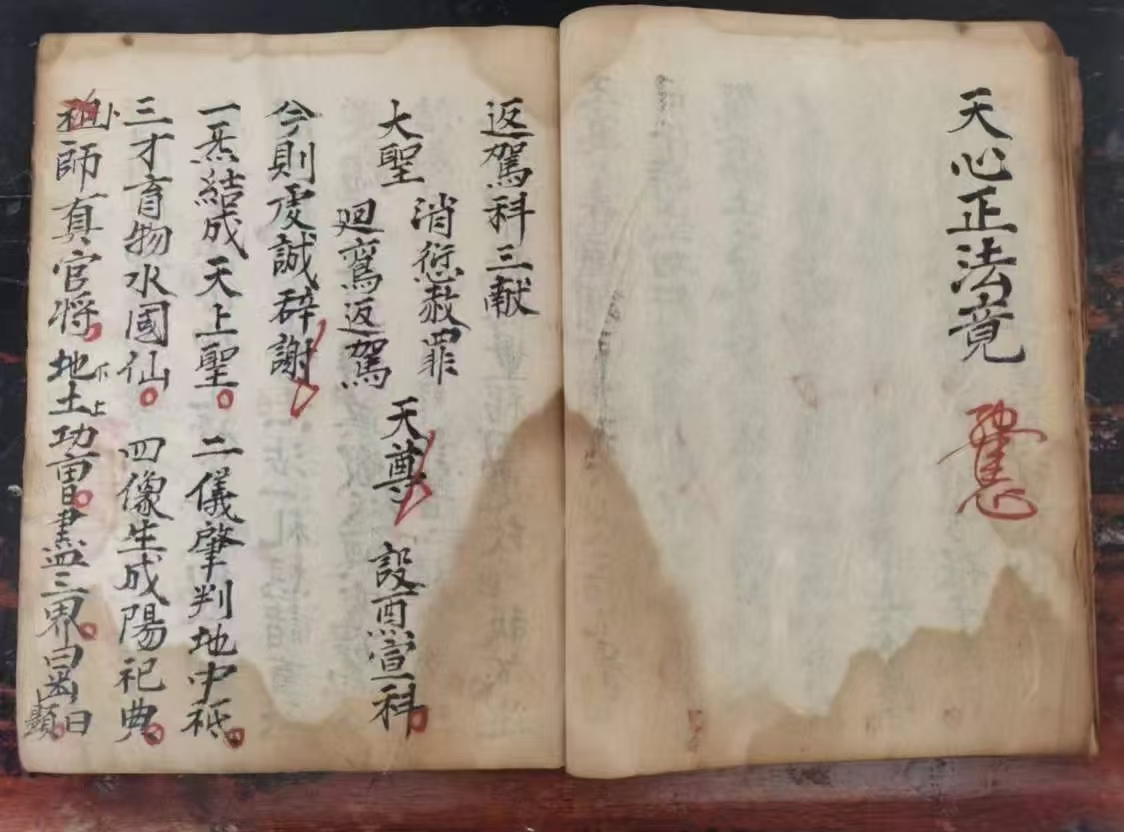 天心正法竟
返駕科三献
大聖
消愆赦罪
迴鸞返駕
天尊 設酉當科
今則虔誠辞謝
一炁結成天上聖 二儀肇判地中祇
三才育物水國仙 四像生成陽祀典
祖師真官將地土功曹盡三界